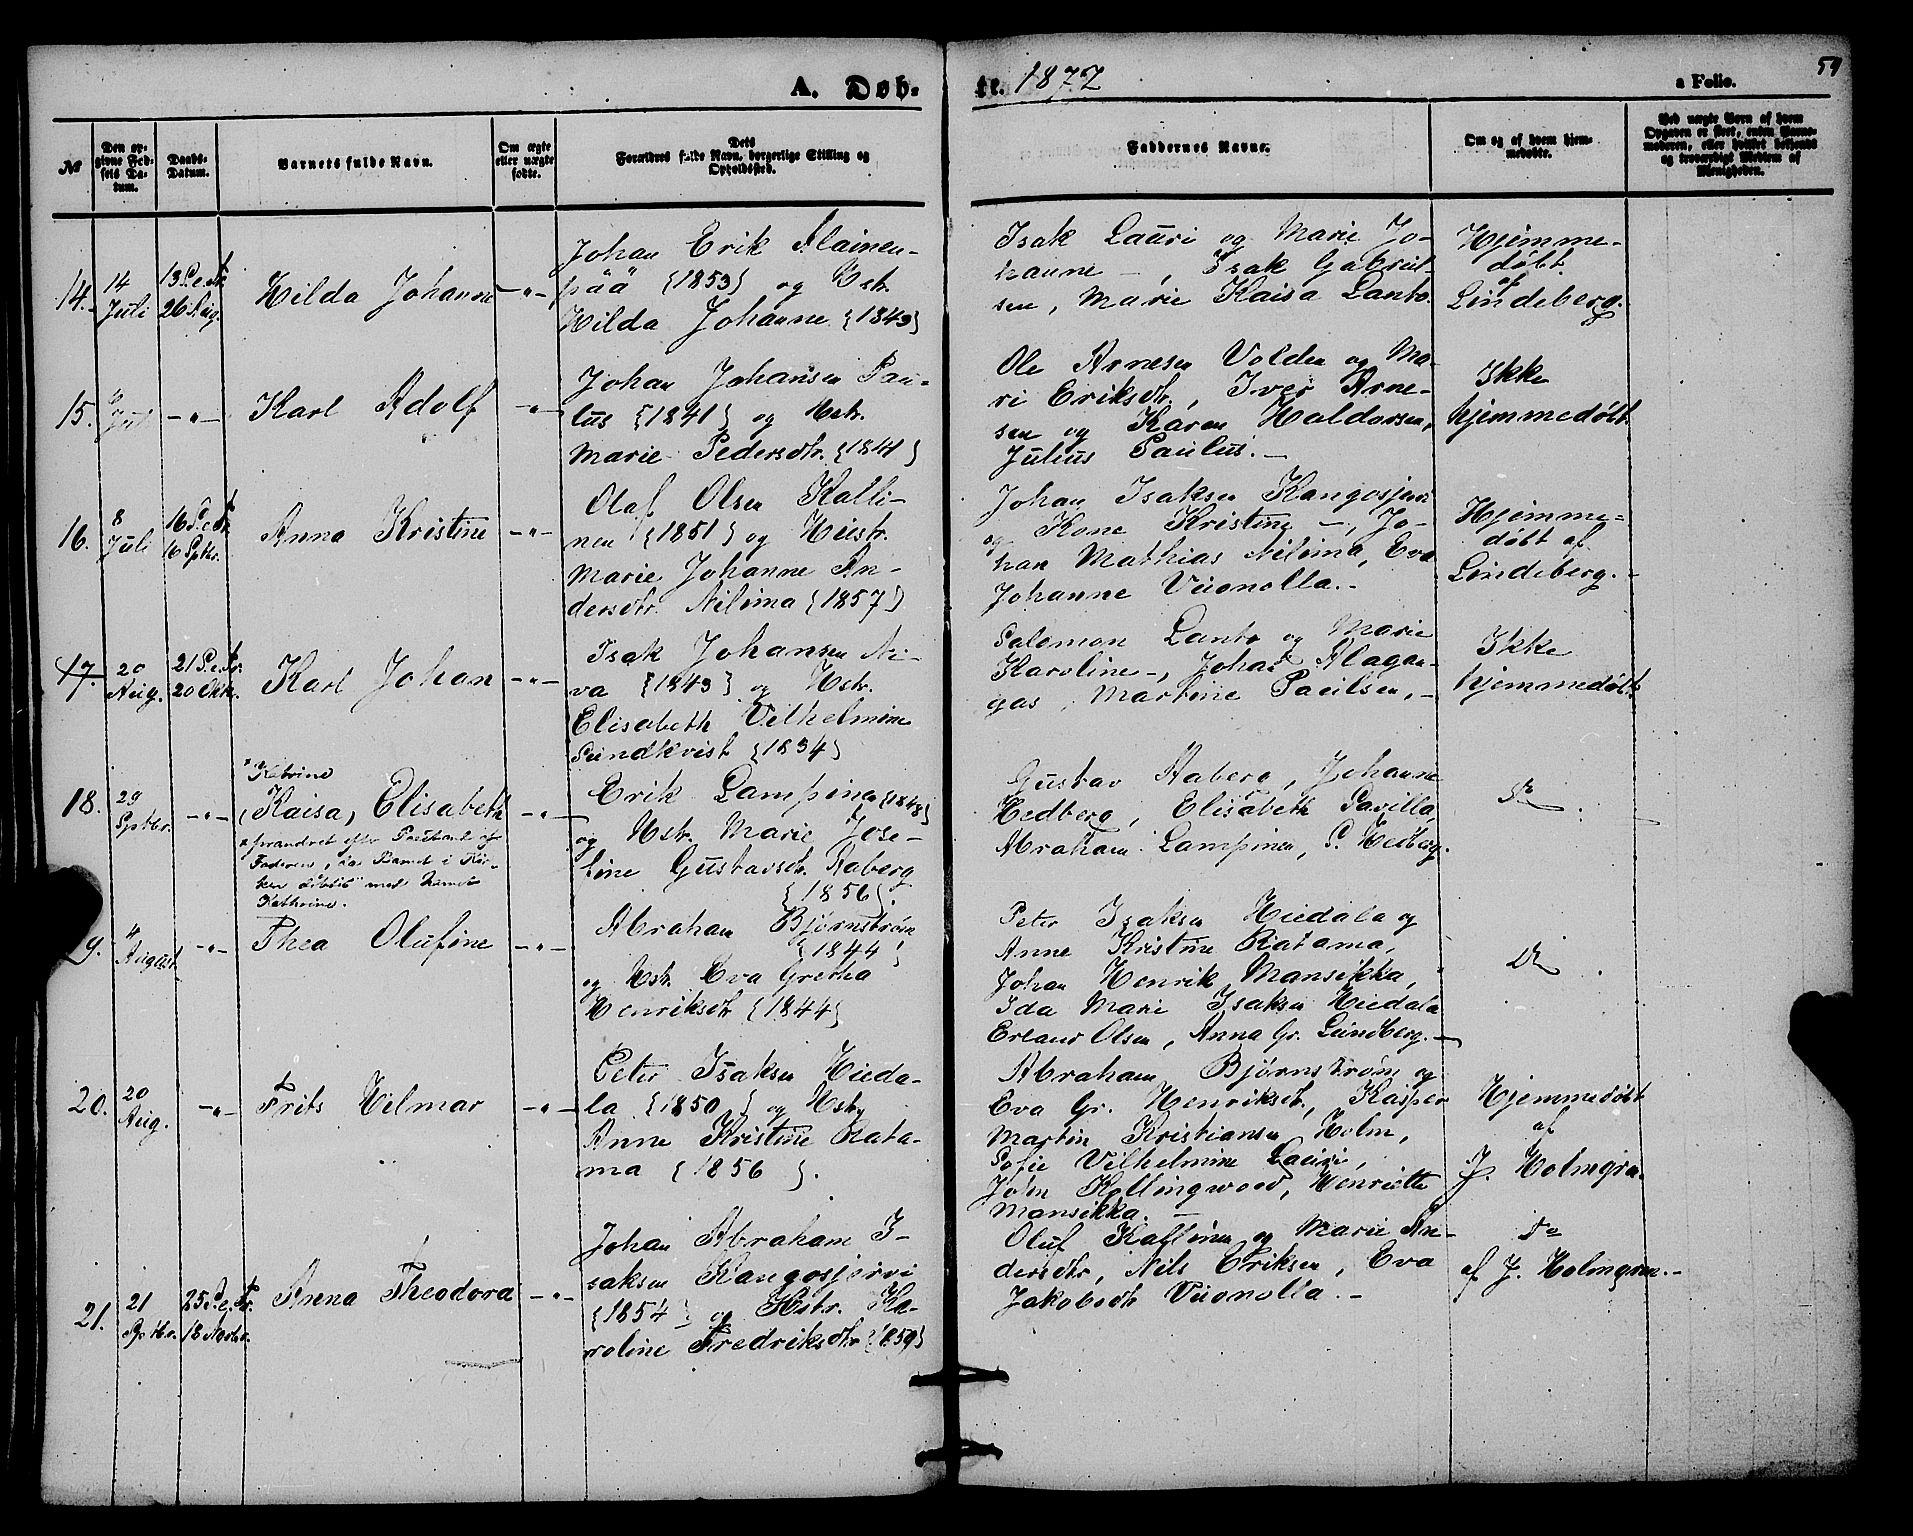 A. Døb-
te. 1877
a Folio.
№
Den opgivne Fødsels Datum.
Daabs-Datum.
Barnets fulde Navn.
Om ægte eller uægte fødte.
Dets Forældres fulde Navn, borgerlige Stilling og Opholdssted.
Faddernes Navne.
Om og af hvem hjemmedøbte.
Ved uægte Børn af hvem Opgaven er skeet, enten Barnemoderen, eller hvilket bekjendt og troværdigt Medlem af Menigheden.
14.
14
Juli
13 S. e. Tr.
26 Aug.
Hilda Johanne
Johan Erik Alainen-
pää {1853} og Hstr.
Hilda Johanne {1849}
Isak Lauri og Marie Jo-
hanne —, Isak Gabriel-
sen, Marie Kaisa Lanto.
Hjemme-
døbt
af
Lindeberg.
15.
Juli
Karl Adolf
Johan Johansen Pau-
lus {1841} og Hstr.
Marie Pedersdtr. {1841}
Ole Arnesen Volden og Ma-
ri Eriksdtr., Iver Arne-
sen og Karen Haldorsen,
Julius Paulus. —
Ikke
hjemmedøbt
16.
8
Juli
16 S. e. Tr.
16 Sptbr.
Anna Kristine
Olaf Olsen Kalli-
nen {1851} og Hustr.
Marie Johanne An-
dersdtr. Nilima {1857}
Johan Isaksen Kangosjærvi
og Kone Kristine —, Jo-
han Mathias Nilima, Eva
Johanne Vuonolla. -
Hjemme-
døbt af
Lindeberg. -
17.
20
Aug.
21 S. e. Tr.
20 Oktbr.
Karl Johan
Isak Johansen Ni-
va {1843} og Hstr.
Elisabeth Vilhelmine
Sundkvist {1834}
Salomon Lanto og Marie
Karoline —, Johan Alagan-
gas, Martine Paulsen, -
Ikke
hjemmedøbt
18.
29
Sptbr.
× Katrine
(Kaisa, Elisabeth
× forandret efter Paastand af
Faderen, da Barnet i Kir-
ken døbtes med Navnet
Kathrine.
Erik Lampinen {1848}
og Hstr. Marie Jose-
fine Gustavsdtr. Aaberg
{1856}.
Gustav Aaberg, Johanne
Hedberg, Elisabeth Savilla,
Abraham Lampinen, P. Hedberg.
do
19.
4
August
Thea Olufine
Abraham Bjørnstrøm
{1844}
og Hstr. Eva Gretha
Henriksdtr {1844}
Peter Isaksen Hiedala og
Anne Kristine Ratama,
Johan Henrik Mansikka,
Ida Marie Isaksen Hiedala
Erland Olsen, Anna Gr. Lundberg. —
do
20.
20
Aug.
Frits Hilmar
Peter Isaksen Hieda-
la {1850} og Hstr
Anne Kristine Rata-
ma {1856}.
Abraham Bjørnstrøm og
Eva Gr. Henriksdtr, Kasper
Martin Kristiansen Holm,
Sofie Vilhelmine Lauri,
John Kollingwood, Henriette
Mansikka. —
Hjemmedøbt
af
J. Holmgren.
21.
21
Sptbr.
25 S. e. Tr.
18 Novbr.
Anna Theodora
Johan Abraham I-
saksen Kangosjervi
{1854} og Hstr. Ka-
roline Fredriksdtr {1859}
Oluf Kallinen og Marie An-
dersdtr, Nils Eriksen, Eva
Jakobsdtr Vuonolla. -
do
af J. Holmgren. -